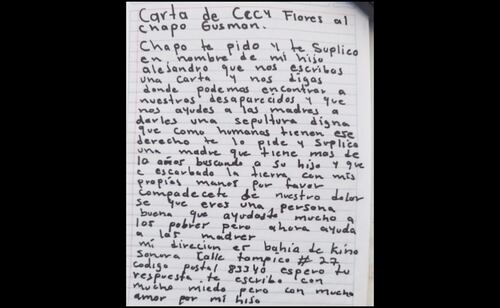 Carta de Cecy Flores al
chapo Gusman.
Chapo te pido y te suplico
en nombre de mi hijo
alejandro que nos escribas
una carta y nos digas
donde podemos encontrar a
nuestros desaparecidos y que
nos ayudes a las madres a
darles una sepultura digna
que como humanas tienen ese
derecho te lo pide y suplico
una madre que tiene mas de
10 años buscando a su hijo y que
e escarbado la tierra con mis
propias manos por favor
compadecete de nuestro dolor
se que eres una persona
buena que ayudaste mucho a
los pobres pero ahora ayuda
a las madres
mi direcion es bahia de kino
Sonora Calle tampico # 27
codigo postal 83340 espero tu
respuesta te escribo con
mucho miedo pero con mucho
amor por mi hijo